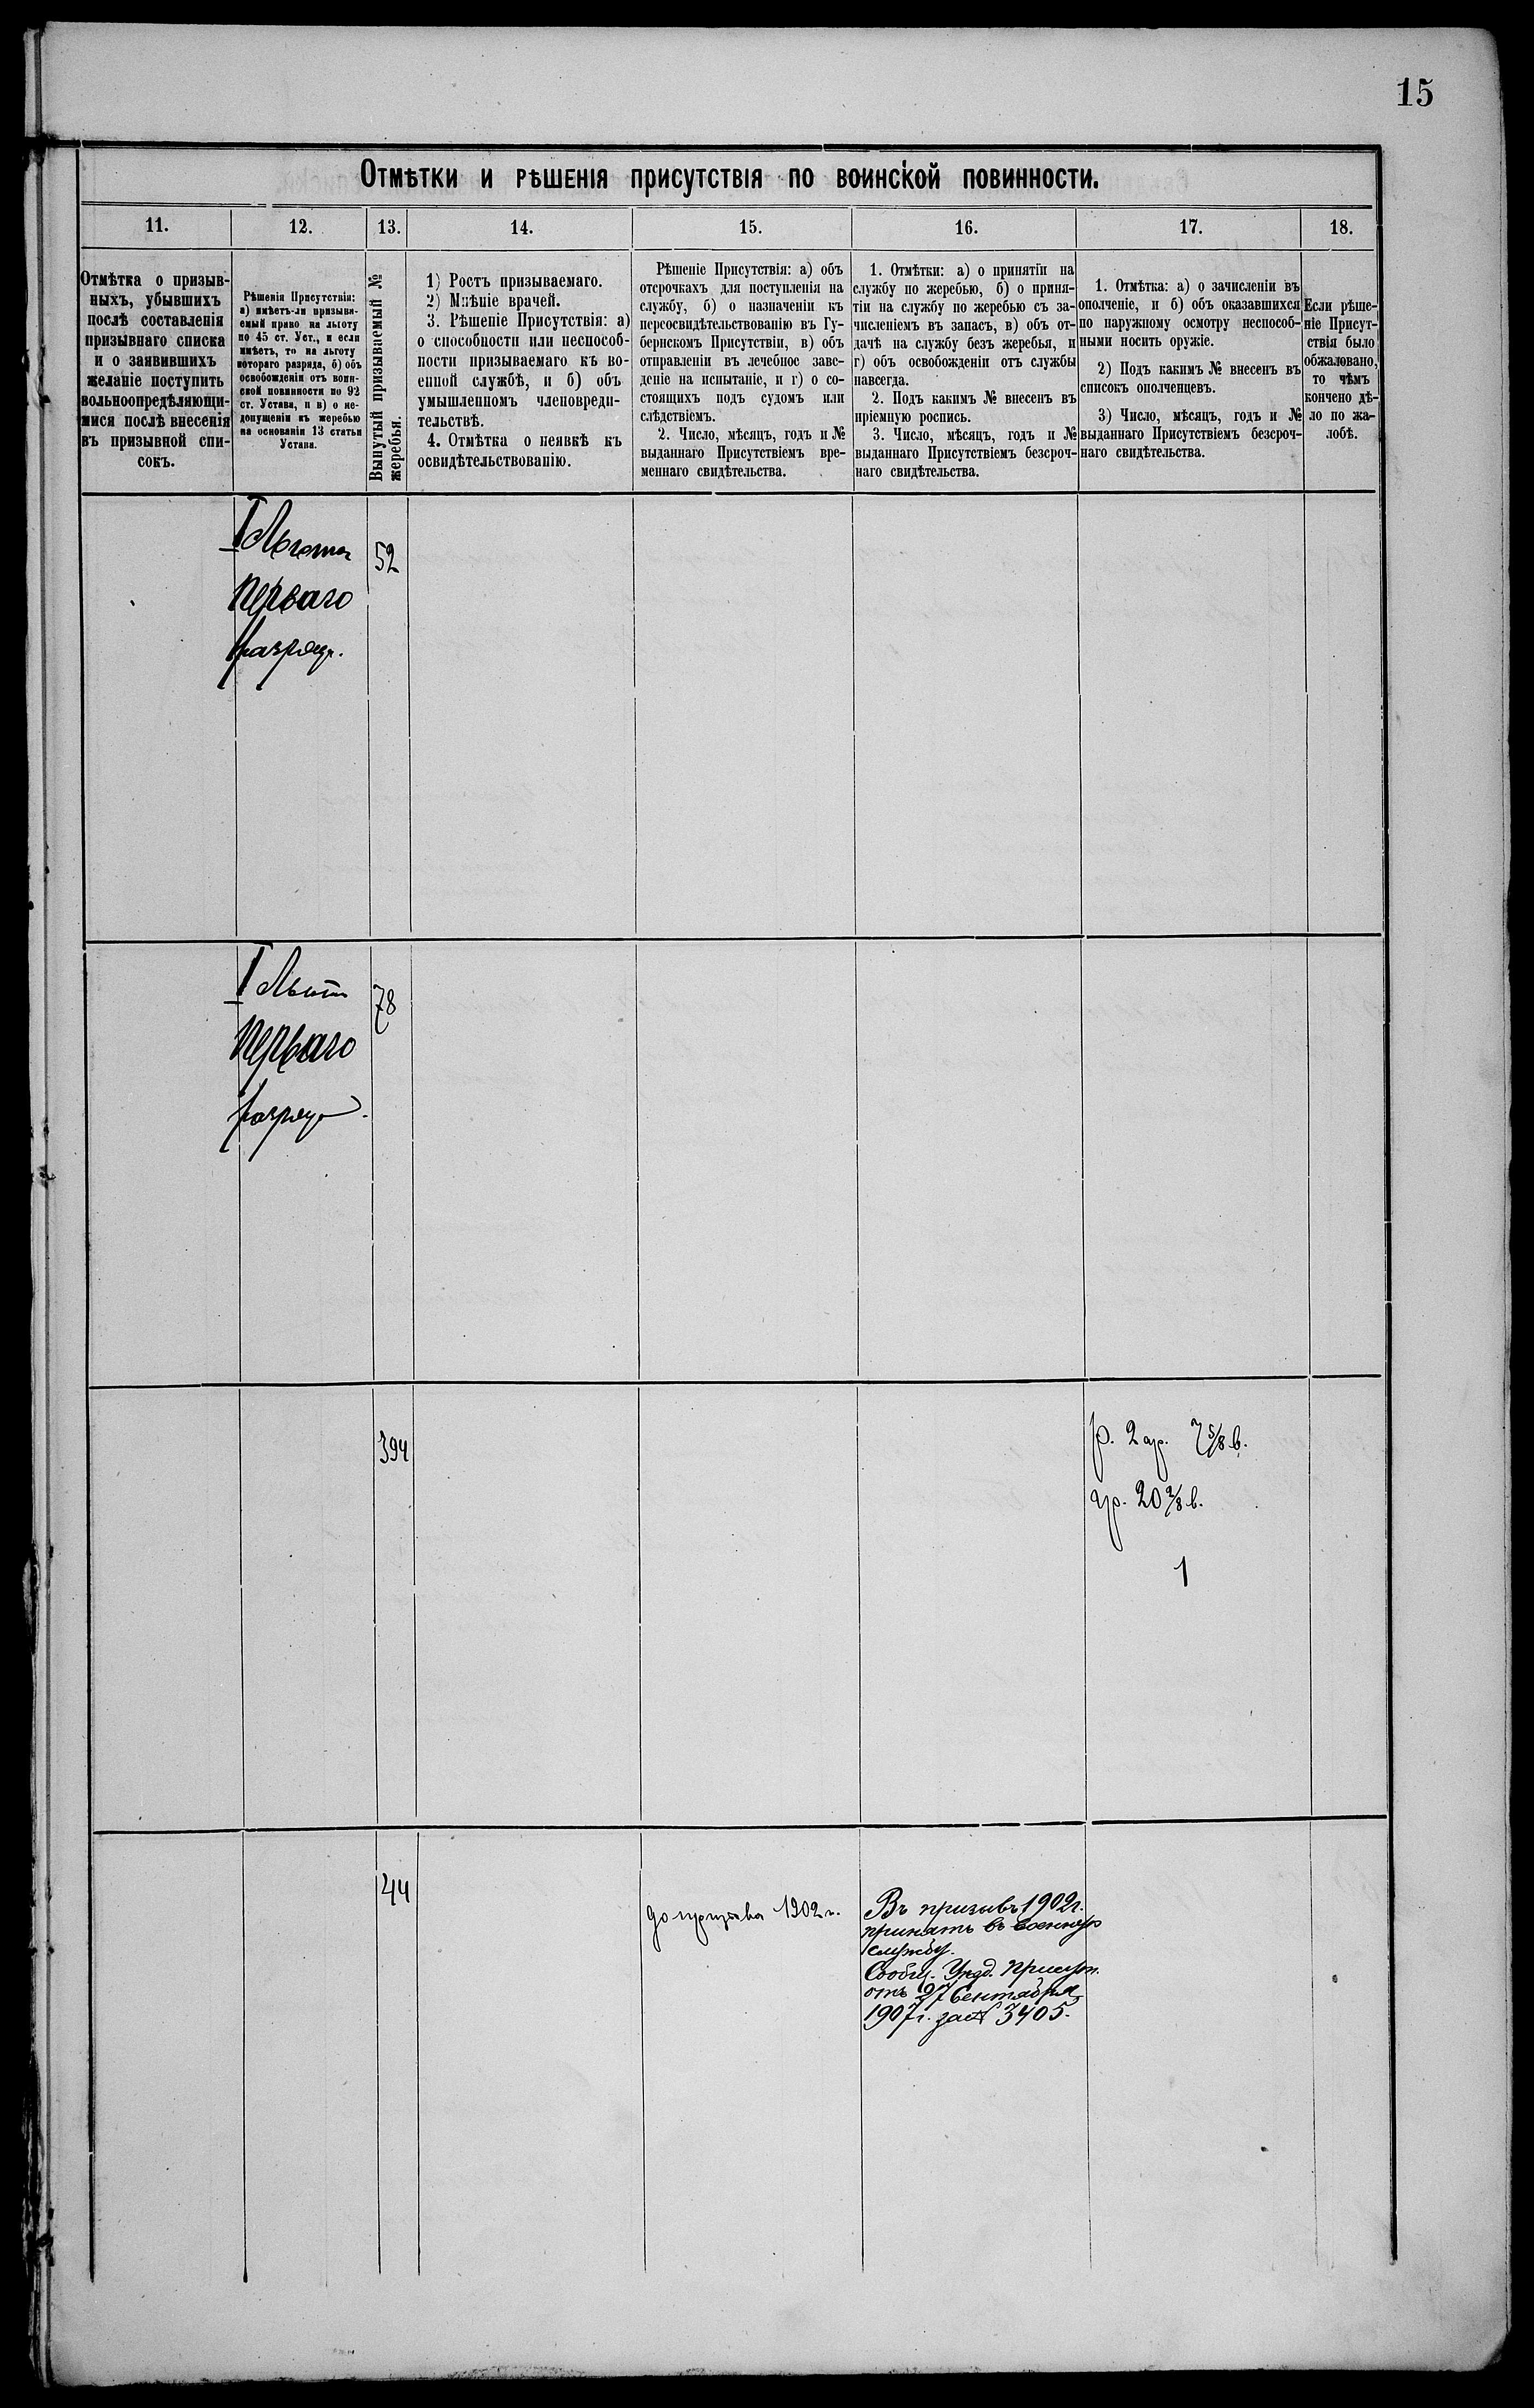 15
Отмѣтки и рѣшенія присутствія по воинской повинности.
11.
12.
13.
14.
15.
16.
17.
18.
Отмѣтка о призыв-
ныхъ, убывшихъ
послѣ составленія
призывнаго списка
и о заявившихъ
желаніе поступить
вольноопредѣляющи-
мися послѣ внесенія
въ призывной спи-
сокъ.
Рѣшенія Присутствія:
а) имѣетъ-ли призыва-
емый право на льготу
по 45 ст. Уст., и если
имѣетъ, то на льготу
котораго разряда, б) объ
освобожденіи отъ воин-
ской повинности по 92
ст. Устава, и в) о не-
допущеніи къ жеребью
на основаніи 13 статьи
Устава.
Вынутый призываемый №
жеребья.
1) Ростъ призываемаго.
2) Мнѣніе врачей.
3. Рѣшеніе Присутствія: а)
о способности или неспособ-
ности призываемаго къ во-
енной службѣ, и б) объ
умышленномъ членовреди-
тельствѣ.
4. Отмѣтка о неявкѣ къ
освидѣтельствованію.
Рѣшеніе Присутствія: а) объ
отсрочкахъ для поступленія на
службу, б) о назначеніи къ
переосвидѣтельствованію въ Гу-
бернскомъ Присутствіи, в) объ
отправленіи въ лечебное заве-
деніе на испытаніе, и г) о со-
стоящихъ подъ судомъ или
слѣдствіемъ.
2. Число, мѣсяцъ, годъ и №
выданнаго Присутствіемъ вре-
меннаго свидѣтельства.
1. Отмѣтки: а) о принятіи на
службу по жеребью, б) о приня-
тіи на службу по жеребью съ за-
численіемъ въ запасъ, в) объ от-
дачѣ на службу безъ жеребья, и
г) объ освобожденіи отъ службы
навсегда.
2. Подъ какимъ № внесенъ въ
пріемную роспись.
3. Число, мѣсяцъ, годъ и №
выданнаго Присутствіемъ безсроч-
наго свидѣтельства.
1. Отмѣтка: а) о зачисленіи въ
ополченіе, и б) объ оказавшихся
по наружному осмотру неспособ-
ными носить оружіе.
2) Подъ какимъ № внесенъ въ
списокъ ополченцевъ.
3) Число, мѣсяцъ, годъ и №
выданнаго Присутствіемъ безсроч-
наго свидѣтельства.
Если рѣше-
ніе Присут-
ствія было
обжаловано,
то чѣмъ
кончено дѣ-
ло по жа-
лобѣ.
I Льгота
перваго
разряда.
52
I Льгота
перваго
разряда.
78
394
р. 2 ар. 7 5/8 в.
гр. 20 2/8 в.
1
44
до призыва 1902 г.
Въ призывъ 1902 г.
принятъ въ военную
службу.
Сообщ. Уѣзд. Присут.
отъ 27 Сентября
1907 г. за № 3405.